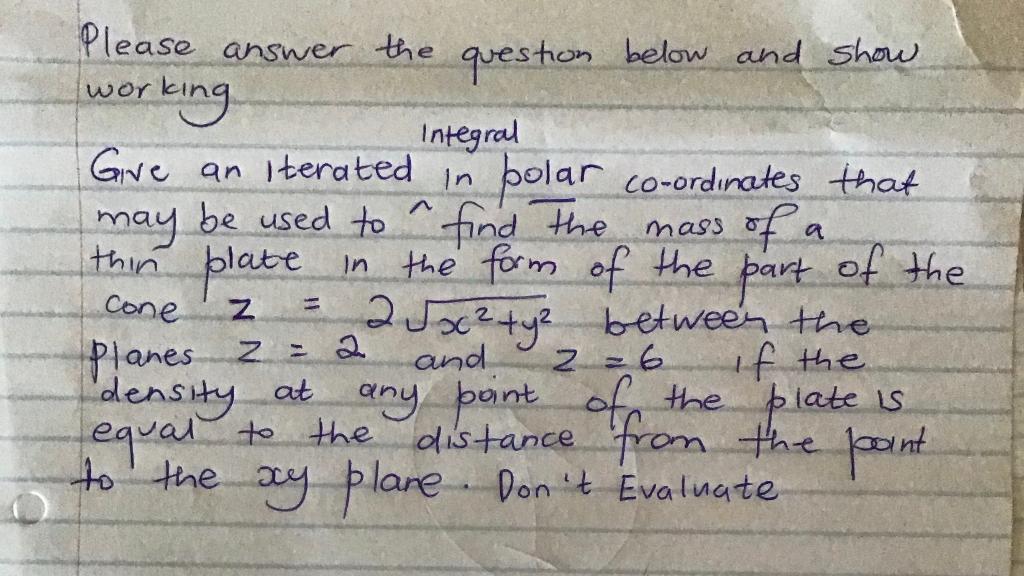 Please answer the question below and show
working
Integral
Give an Iterated in polar co-ordinates that
may be used to ^ find the mass of a
thin plate in the form of the part of the
cone z = 2√x²+y² between the
planes z = 2 and z = 6 if the
density at any point of the plate is
equal to the distance from the point
to the xy plane. Don't Evaluate